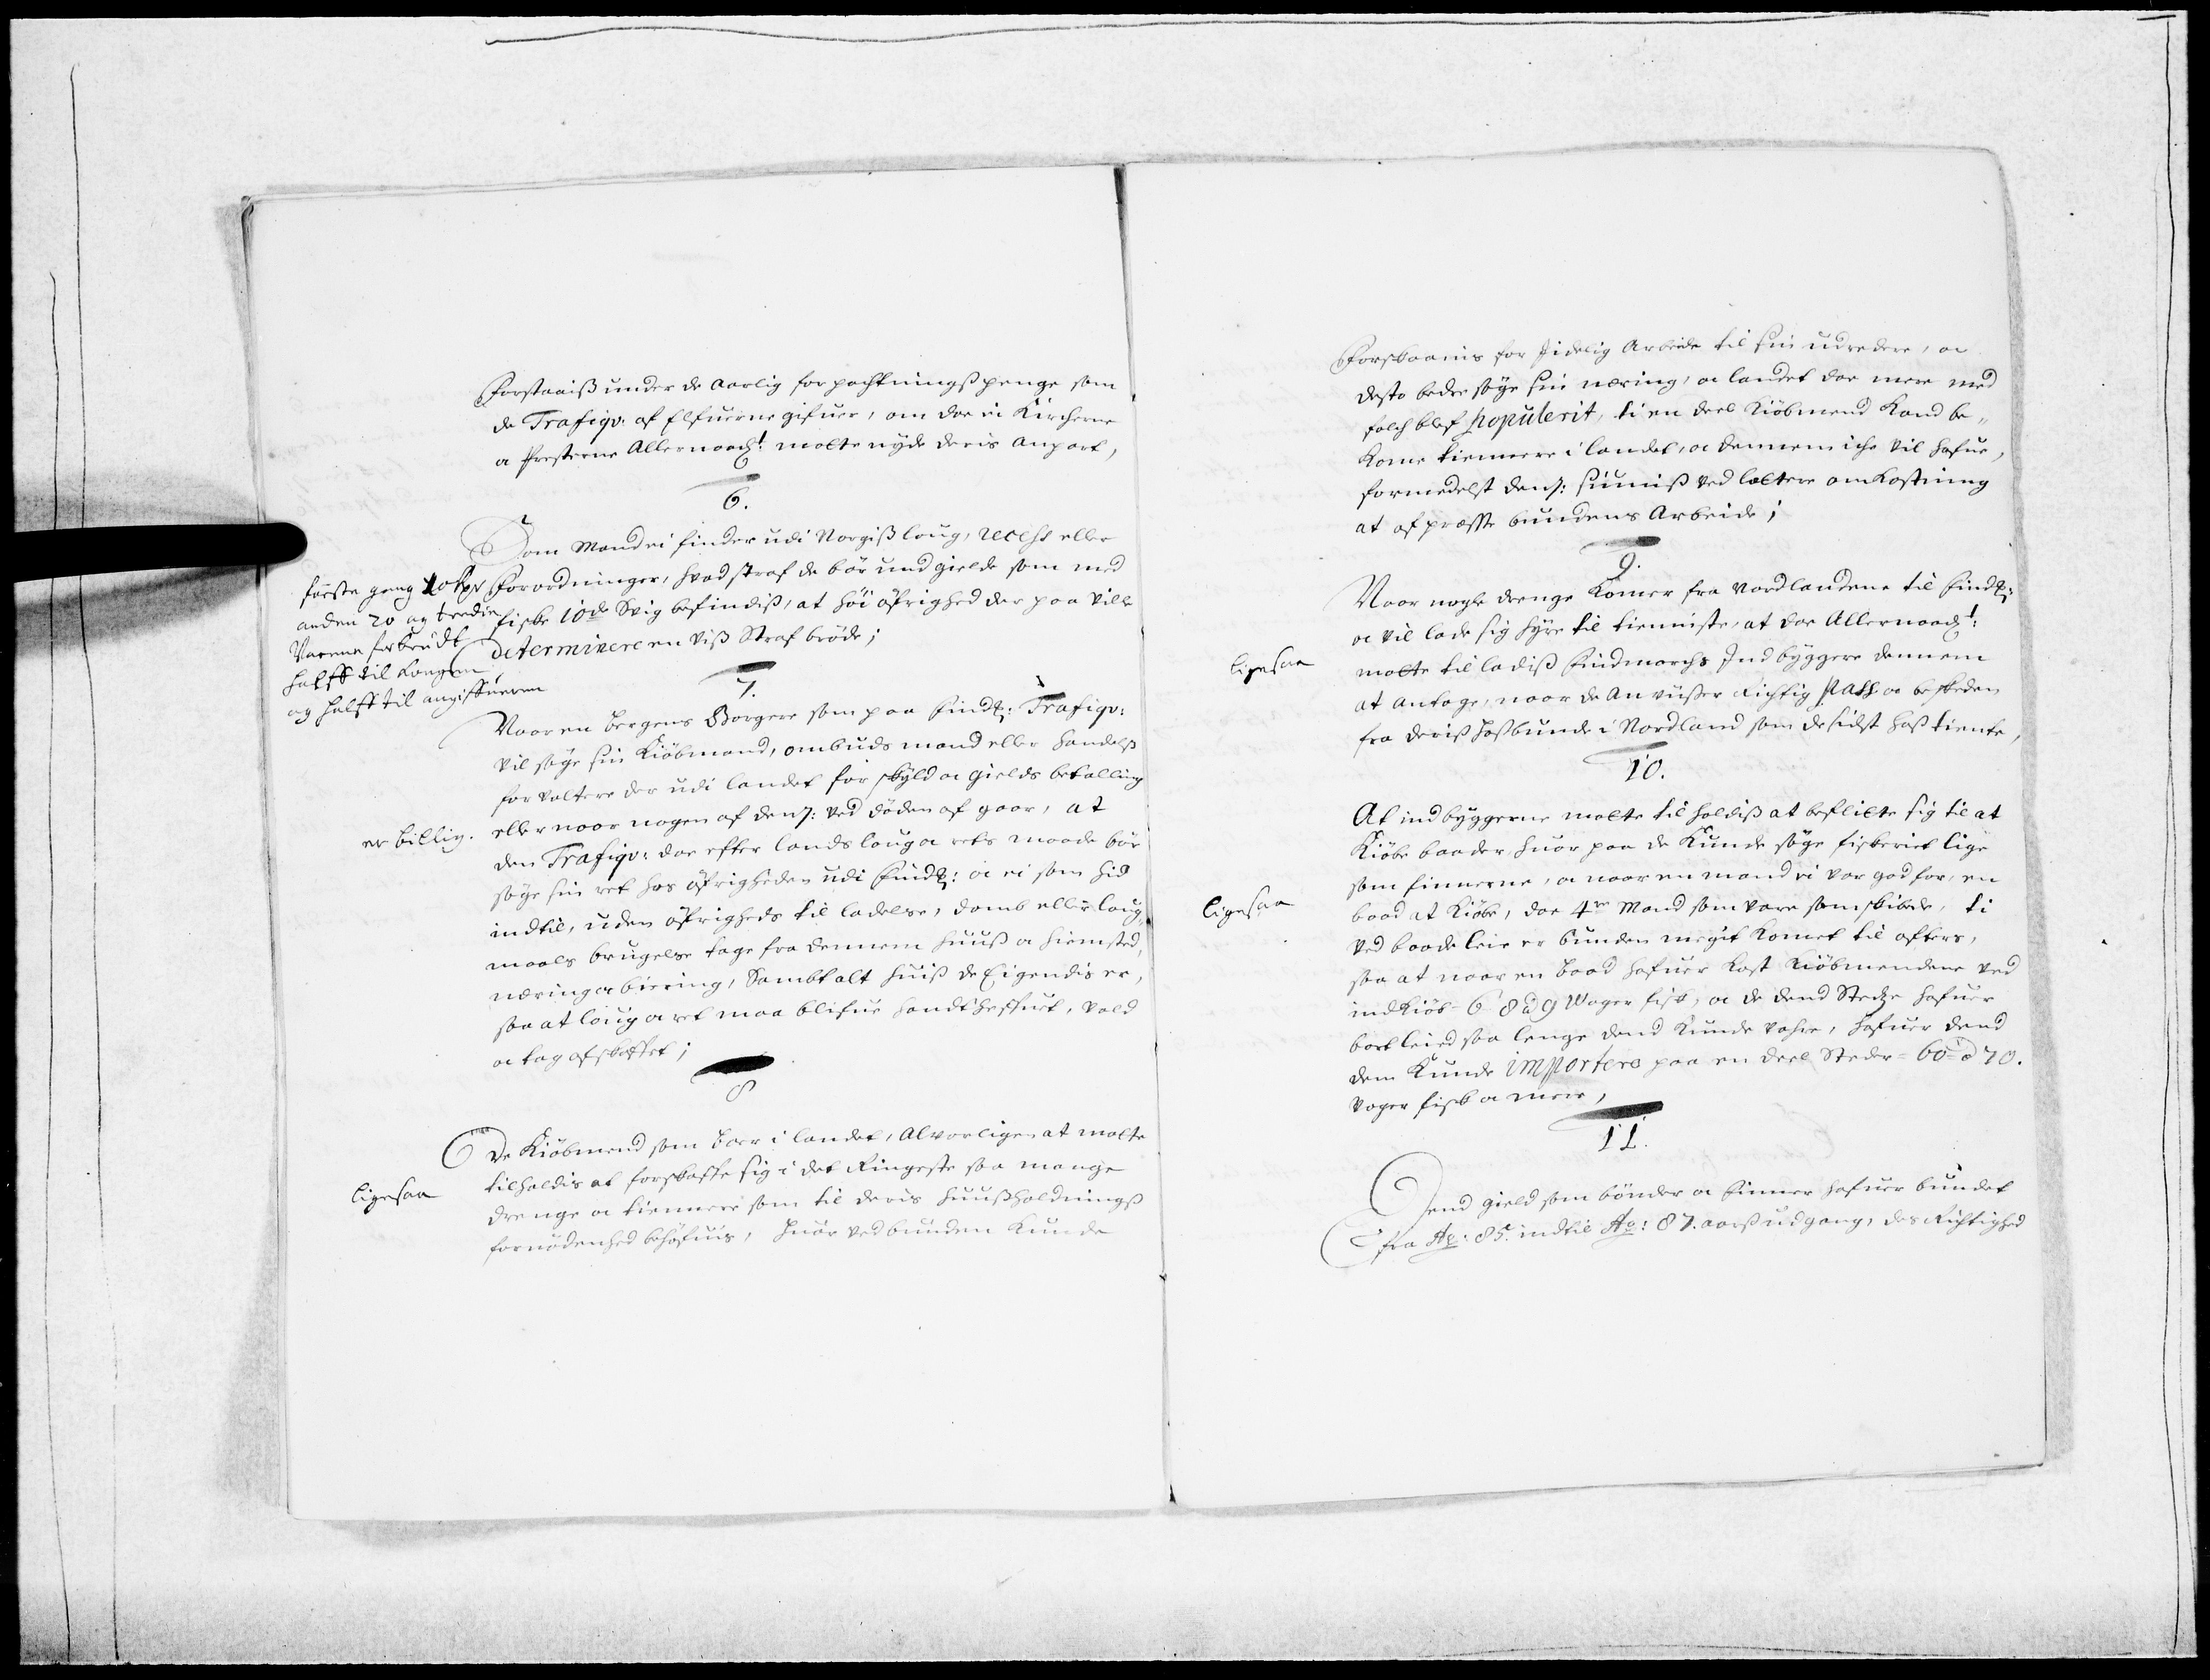 Forstaaiss under de aarlig forpachtningss penge som
de Trafiqv: af Elfuerne gifuer, om der ei Kircherne
a Presterne Allernaadt: motte nyde deris anpart,
6.
Som Mand ei finder udi Norgiss loug, recess eller
Forordninger, hvad straf de bör undgielde som med
fiske 10de Svig befindiss, at høi öfrighed der paa ville
determinere en viss Straf bröde;
første gang 10 Rdr
anden 20 og tredie
Varene forbrudt
halff til Kongen
og halff til angiffueren
7.
Naar en bergens Borgere som paa Findm: Trafiqv:
vil søge sin Kiöbmand, ombuds mand eller handelss
forvaltere der udi landet for skyld a gields betalling
eller naar nogen af dens: ved döden af gaar, at
den Trafiqv: der efter lands loug a rets maade bör
søge sin ret hos öfrigheden udi Findm: a ei som hid
indtil, uden öfrigheds til ladelse, domb eller loug
maals brugelse tage fra dennem huuss a hiemsted,
næring a biering, Sambt alt huiss de Eigendis er,
saa at loug a ret maa blifue handtheffuet, vold
a tag afskaffet;
er billig.
8
De Kiöbmend som boer i landet, Alvorligen at motte
tilholdis at forskaffe sig i det Ringeste saa mange
drenge a tiennere som til deris huussholdningss
fornödenhed behöfuis, huor ved bunden Kunde
ligesaa
Forskaanis for Jidelig Arbeide til sin udredere, a
desto bedre søge sin næring, a landet der mere med
folch blef populerit, ti en deel Kiöbmend Kand be„
Kome tiennere i landet, a dennem iche vil hafue,
formedelst dens: ved lættere omkostning
at af presse bundens Arbeide;
9.
Naar nogle drenge Komer fra nordlandene til Findm:
a vil lade sig hyre til tienniste, at der Allernaadt:
motte til ladiss Findmarchs Ind byggere dennem
at antage, naar de anviisser Richtig Pass a besked
fra deriss hossbunde i Nordland som de sidst hoss tiente,
ligesaa
10.
At indbyggerne motte til holdiss at beflitte sig til at
Kiöbe baader, huor paa de Kunde søge fiskeriet lige
som finnerne, a naar en mand ei var god for, en
baad at Kiöbe, der 4re Mand som vare somskibede, ti
ved baadeleie er bunden megit Komet til afters,
saa at naar en baad hafuer Kost Kiöbmendene ved
indkiöb = 6 8 a 9 Woger fisk, a de dend Stedze hafuer
bortleied saa lenge dend Kunde vahre, hafuer dend
dem Kunde importere paa en deel Steder = 60 a 70.
voger fisk a mere,
ligesaa
11.
Dend gield som bönder a finner hafuer bundet
fra Ao: 85. indtil Ao: 87. aarss udgang, des Richtighed